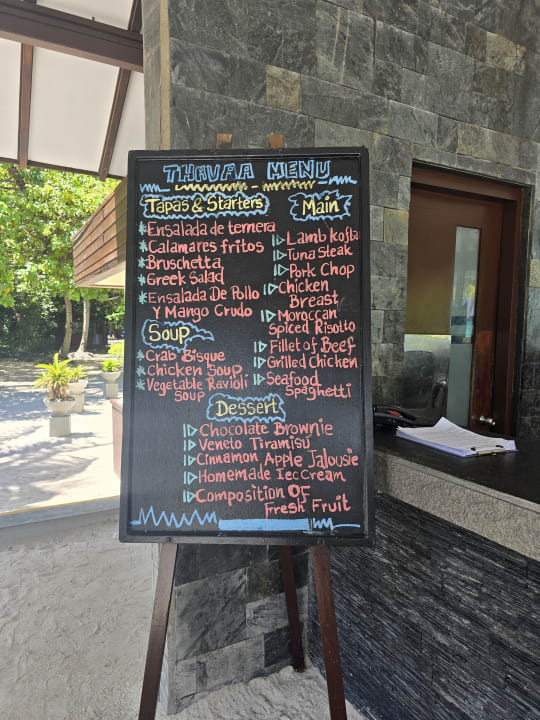 THUAA MENU
Tapas & Starters
Ensalada de ternera
Calamares fritos
Bruschetta
Greek Salad
Ensalada De Pollo
Y Mango Crudo
Soup
Crab Bisque
Chicken Soup
Vegetable Ravioli
Soup
Main
Lamb kofta
Tuna Steak
Pork Chop
Chicken
Breast
Moroccan
Spiced Risotto
Fillet of Beef
Grilled Chicken
Seafood
Spaghetti
Dessert
Chocolate Brownie
Veneto Tiramisu
Cinnamon Apple Jalousie
Homemade IecCream
Composition OF
Fresh Fruit